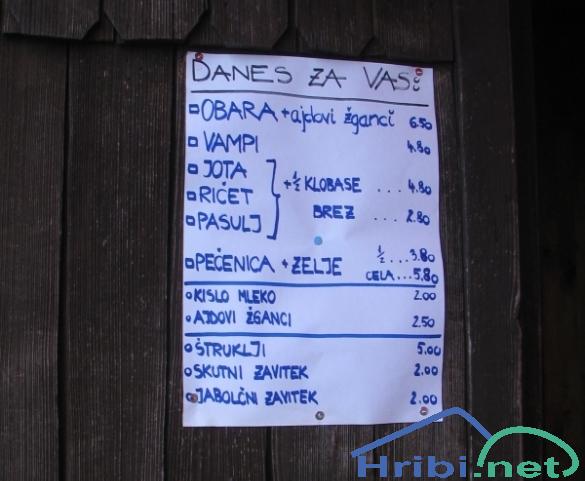 DANES ZA VAS:
OBARA + ajdovi žganci 6.50
VAMPI 4.80
JOTA
RIČET
PASULJ
+ ½ KLOBASE ... 4.80
BREZ ... 2.80
PEČENICA + ZELJE ½ ... 3.80
CELA ... 5.80
KISLO MLEKO 2.00
AJDOVI ŽGANCI 2.50
ŠTRUKLJI 5.00
SKUTNI ZAVITEK 2.00
JABOLČNI ZAVITEK 2.00
Hribi.net